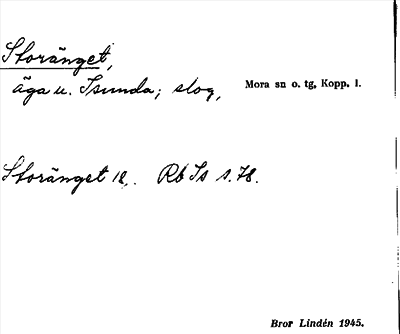 Storänget,
äga u. Isunda; slog,
Mora sn o. tg, Kopp. l.
Storänget 18,. Rb Is s. 78.
Bror Lindén 1945.